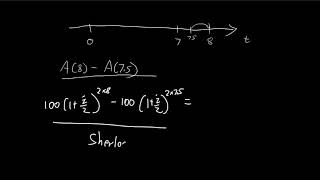 0 7 7.5 8 t
A(8) - A(7.5)
100(1+i/2)^2×8 - 100(1+i/2)^2×7.5 =
Sherlo